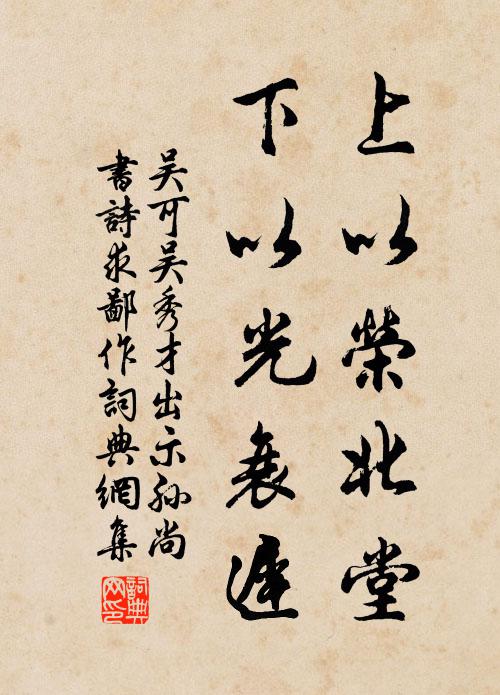 上以榮北堂
下以光衰遲
吴可吴秀才出示孙尚
書詩求鄙作詞典網集
詞典网印